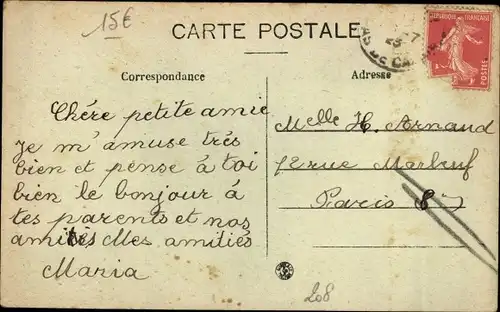 15€
CARTE POSTALE
RÉPUBLIQUE FRANÇAISE
POSTES
Correspondance
Adresse
Chére petite amie
Je m'amuse trés
bien et pense á toi
bien le bonjour á
tes parents et nos
amities Mes amitiés
Maria
Melle H. Arnaud
12 rue Marbeuf
Paris 8e
208